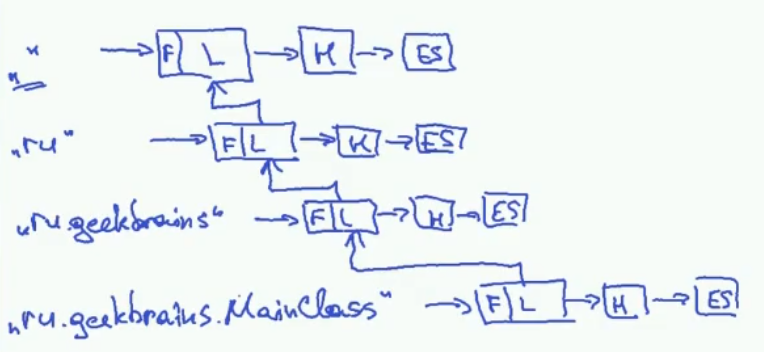 „ “ F L H ES
„ru“ F L H ES
„ru.geekbrains“ F L H ES
„ru.geekbrains.MainClass“ F L H ES